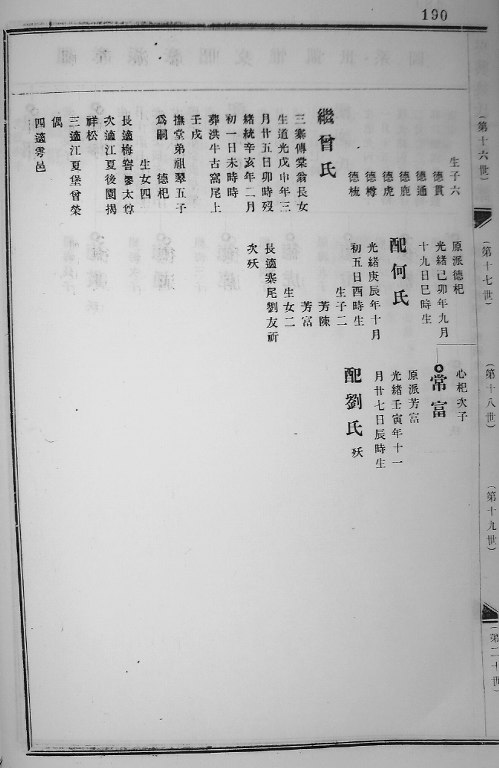 190
(第十六世)
(第十七世)
(第十八世)
(第十九世)
(第二十世)
生子六
德貫
德通
德鹿
德虎
德樽
德梳
繼曾氏
三寨傳棠翁長女
生道光戊申年三
月廿五日卯時歿
緒統辛亥年二月
初一日未時時
葬洪牛古窩尾上
壬戌
撫堂弟祖翠五子
為嗣 德杞
生女四
長適梅窖廖太尊
次適江夏後園揭
祥松
三適江夏堡曾榮
偶
四適雩邑
原派德杞
光緒己卯年九月
十九日巳時生
配何氏
光緒庚辰年十月
初五日酉時生
生子二
芳陳
芳富
生女二
長適寨尾劉友祈
次殀
心杞次子
常富
原派芳富
光緒壬寅年十一
月廿七日辰時生
配劉氏 殀